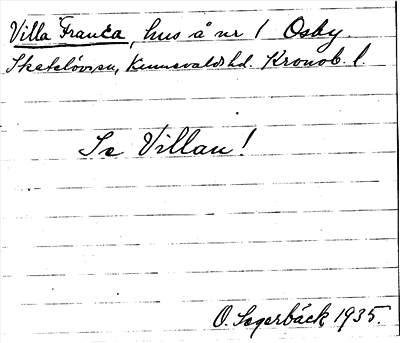 Villa Franca, hus å nr 1 Osby.
Skatelövssn, Kinnevaldshd. Kronob. l.
Se Villan!
O. Segerbäck 1935.